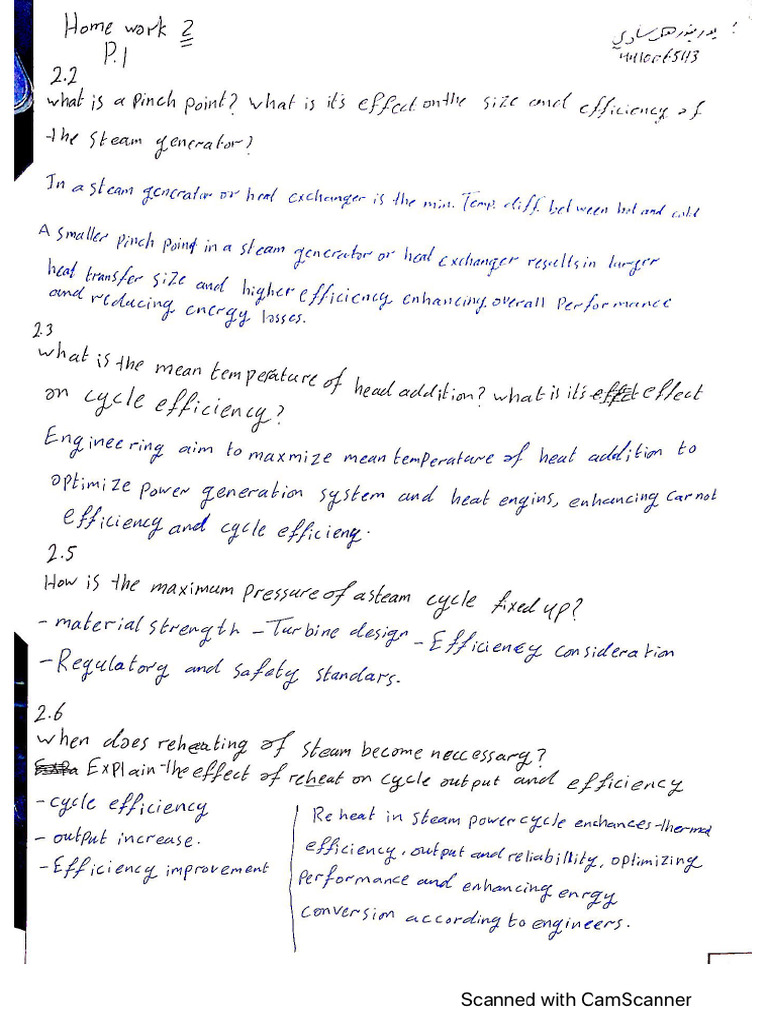 Home work 2
P.1
2.2
what is a pinch point? what is it's effect on the size and efficiency of
the steam generator?
In a steam generator or heat exchanger is the min. Temp. diff. between hot and cold
A smaller pinch point in a steam generator or heat exchanger results in larger
heat transfer size and higher efficiency enhancing overall performance
and reducing energy losses.
2.3
what is the mean temperature of head addition? what is it's effect
on cycle efficiency?
Engineering aim to maxmize mean temperature of heat addition to
optimize power generation system and heat engins, enhancing carnot
efficiency and cycle efficieny.
2.5
How is the maximum pressure of a steam cycle fixed up?
- material strength - Turbine design - Efficiency consideration
- Regulatory and safety standars.
2.6
when does reheating of steam become neccessary?
Explain the effect of reheat on cycle output and efficiency
- cycle efficiency
- output increase.
- Efficiency improvement
Reheat in steam power cycle enchances thermal
efficiency, output and reliabillity, optimizing
performance and enhancing enrgy
conversion according to engineers.
Scanned with CamScanner